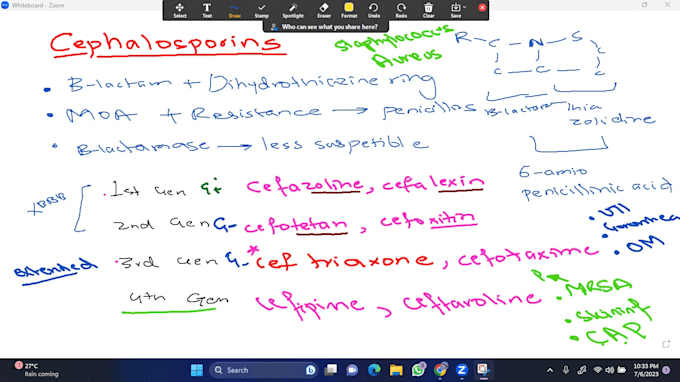 Whiteboard - Zoom
Select Text Draw Stamp Spotlight Eraser Format Undo Redo Clear Save
Who can see what you share here?
Cephalosporins
Staphylococcus
Aureus
R-C-N-S
C
C-C
C
• B-lactam + Dihydrothiazine ring
• MOA + Resistance → penicillins
B-lactam
thia
zolidine
• B-lactamase → less suspetible
6-amino
penicillinic acid
XBBB
• 1st Gen G+ Cefazoline, cefalexin
2nd Gen G- cefotetan, cefoxitin
• UTI
• Gonorrhea
• OM
extended
• 3rd Gen G- *Ceftriaxone, cefotaxime
4th Gen Cefipine, ceftaroline
• MRSA
• Skin inf
• CAP
27°C
Rain coming
Search
10:33 PM
7/6/2023